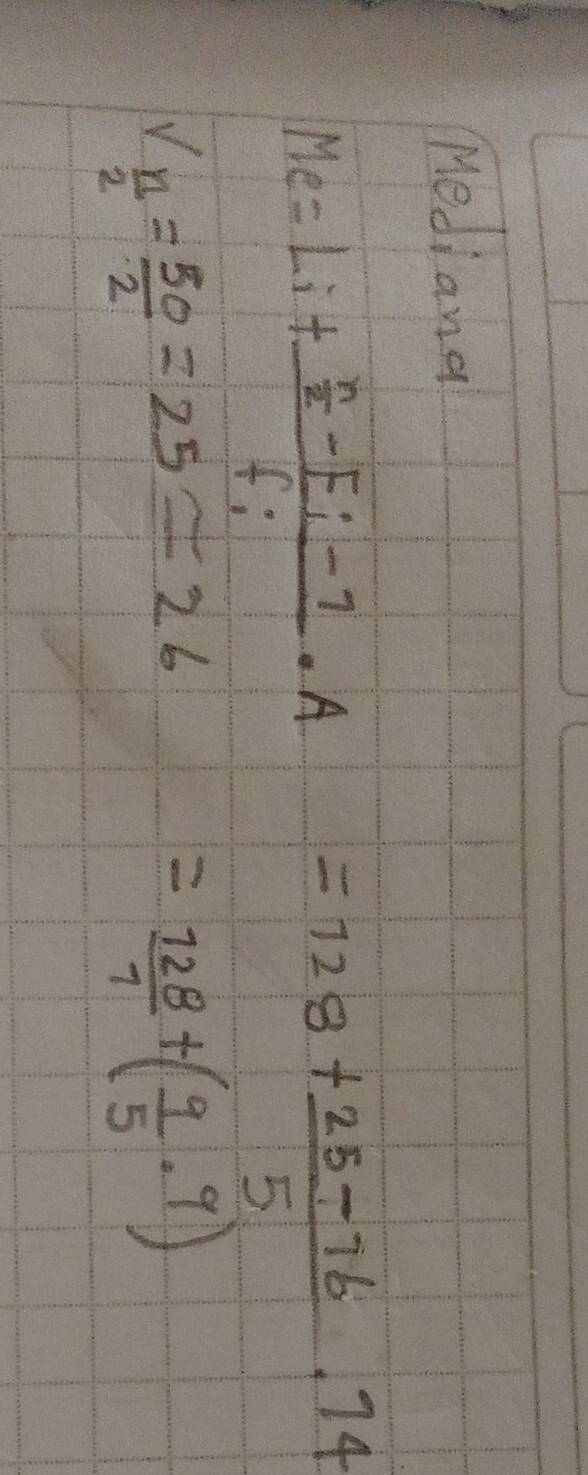 Mediana
Me = Li + \frac{\frac{n}{2} - Fi - 1}{fi} . A = 128 + \frac{25 - 16}{5} . 14
√ \frac{n}{2} = \frac{50}{2} = 25 ≃ 26 = \frac{128}{1} + (\frac{9}{5} . 9)